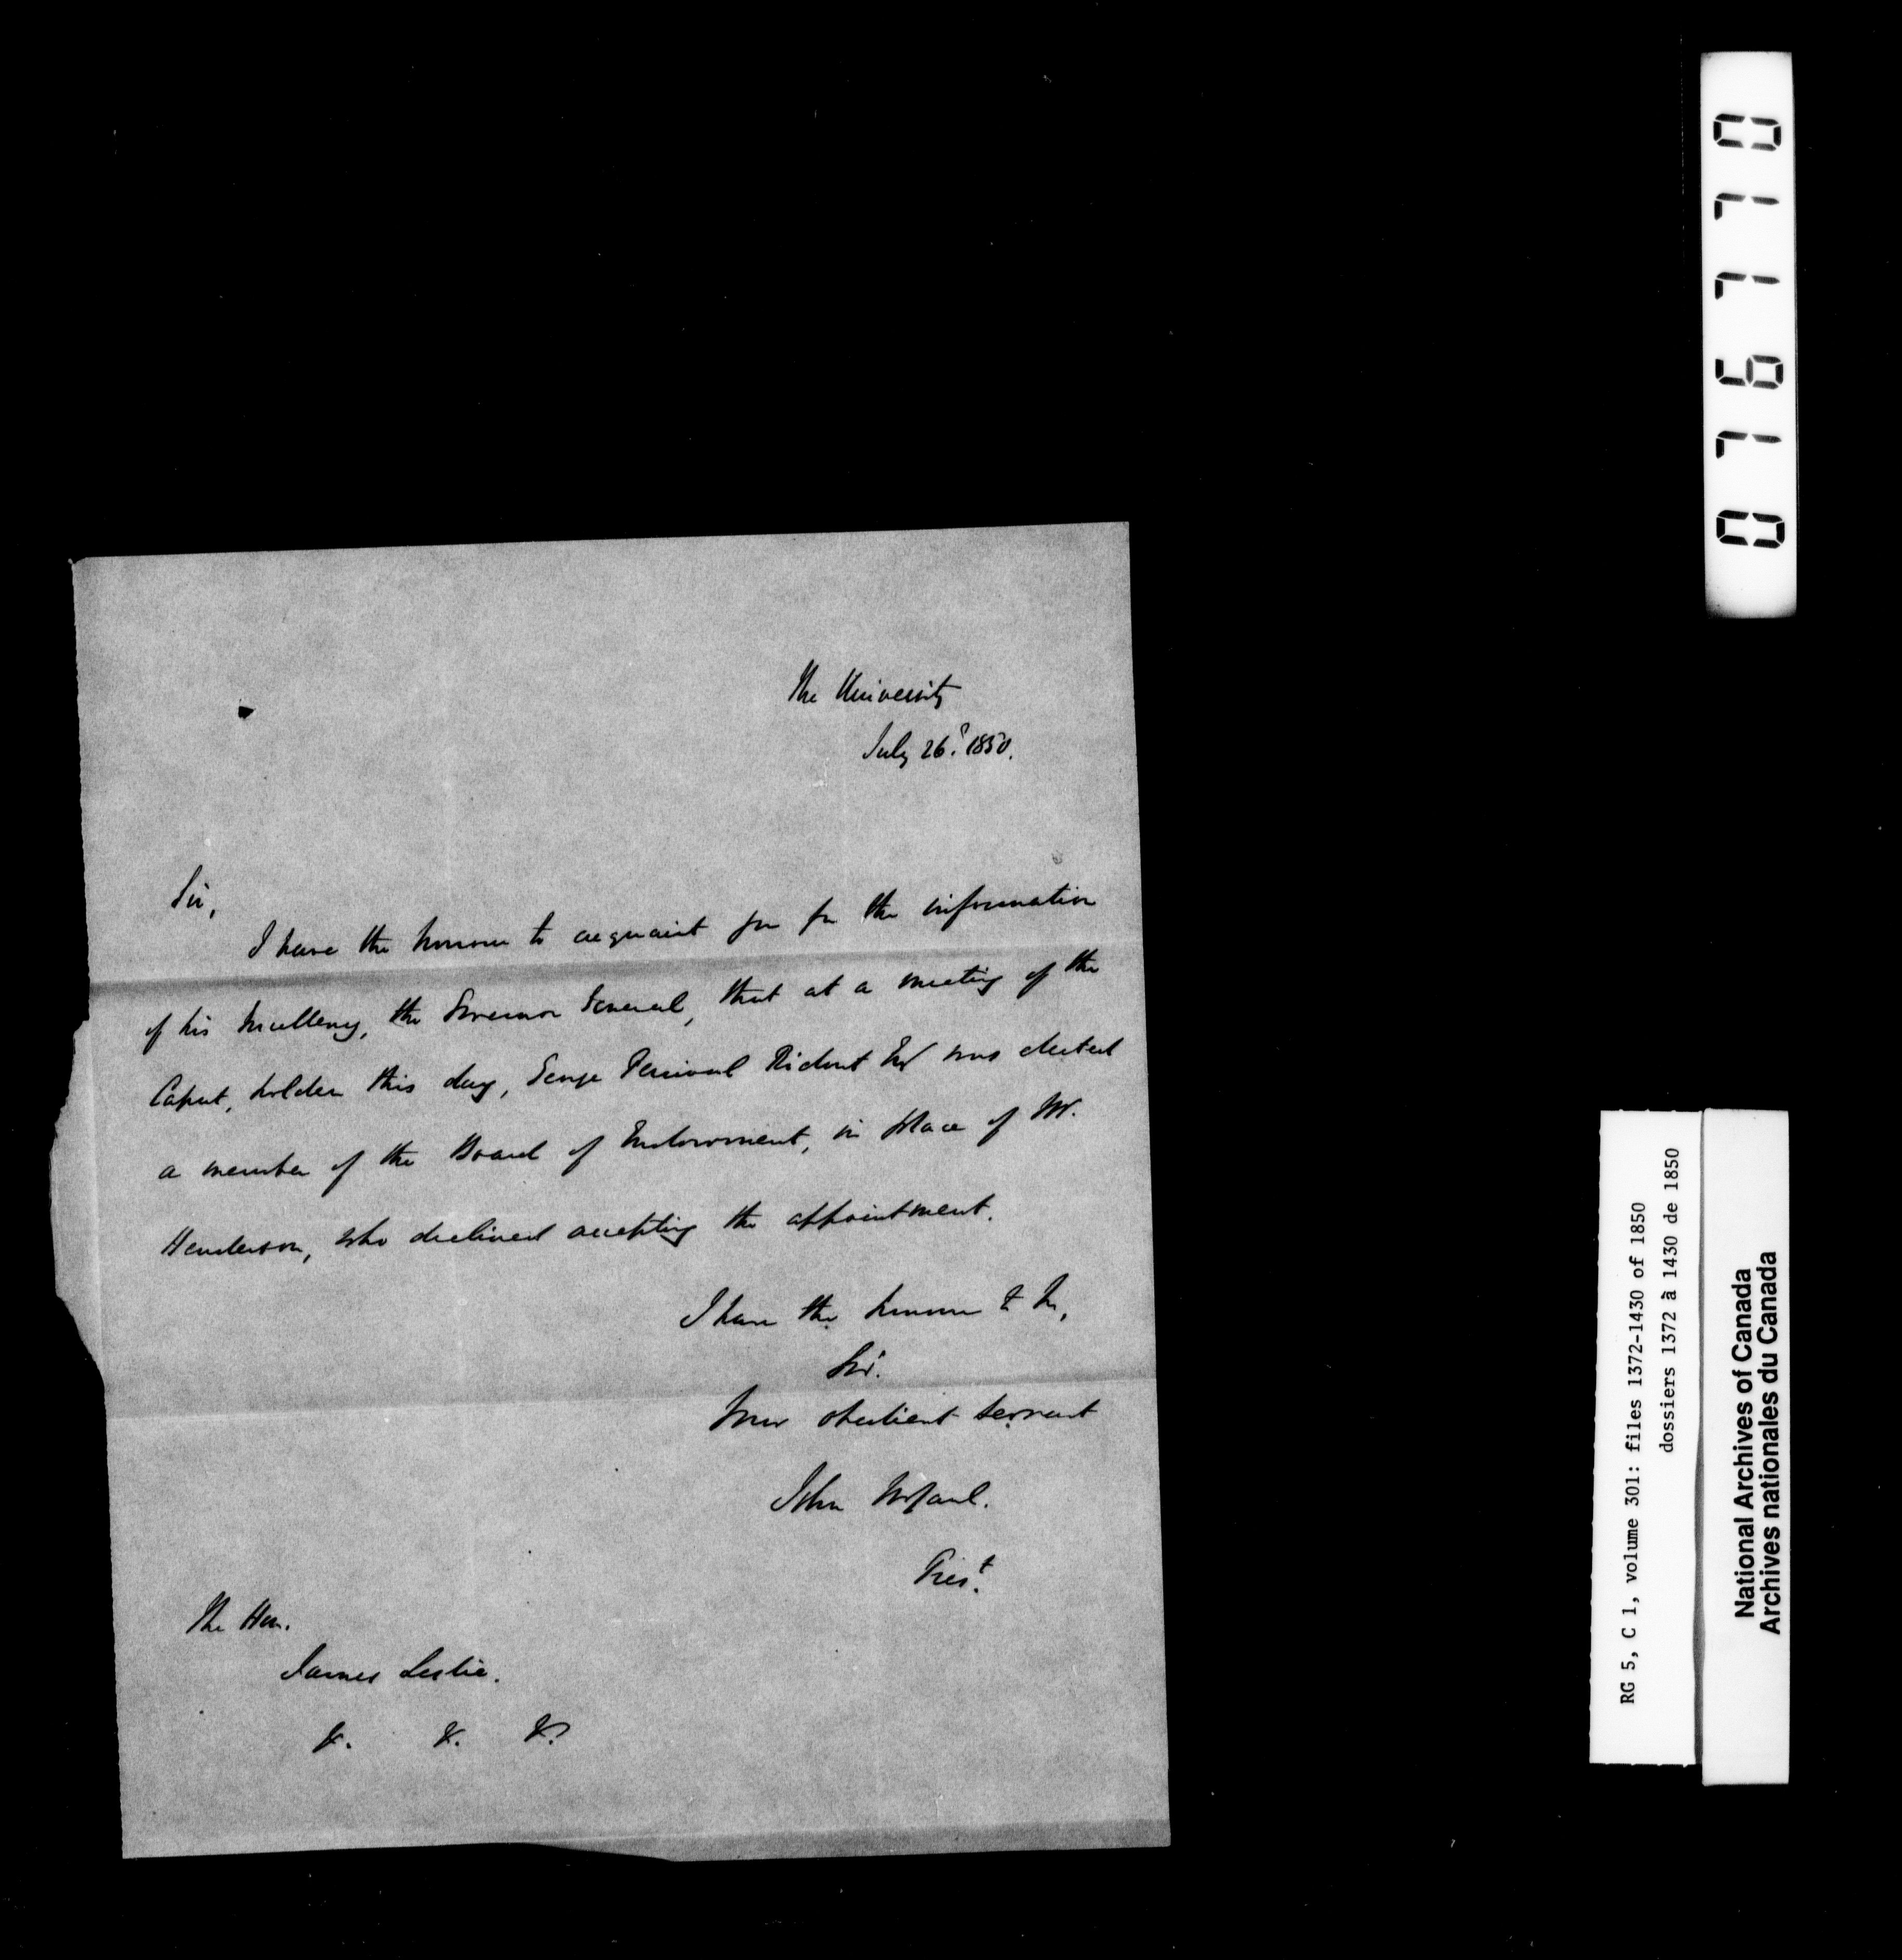 The University
July 26. 1850.
Sir,
I have the honour to acquaint you for the information
of his Excellency, the Governor General, that at a meeting of the
Caput, holden this day, George Percival Ridout Esq was elected
a member of the Board of Endowment, in place of Mr.
Henderson, who declined accepting the appointment.
I have the honour to be,
Sir.
Your obedient servant
John McCaul.
Prest.
The Hon.
James Leslie.
&. &. &.
076770
RG 5, C 1, volume 301: files 1372-1430 of 1850
dossiers 1372 à 1430 de 1850
National Archives of Canada
Archives nationales du Canada